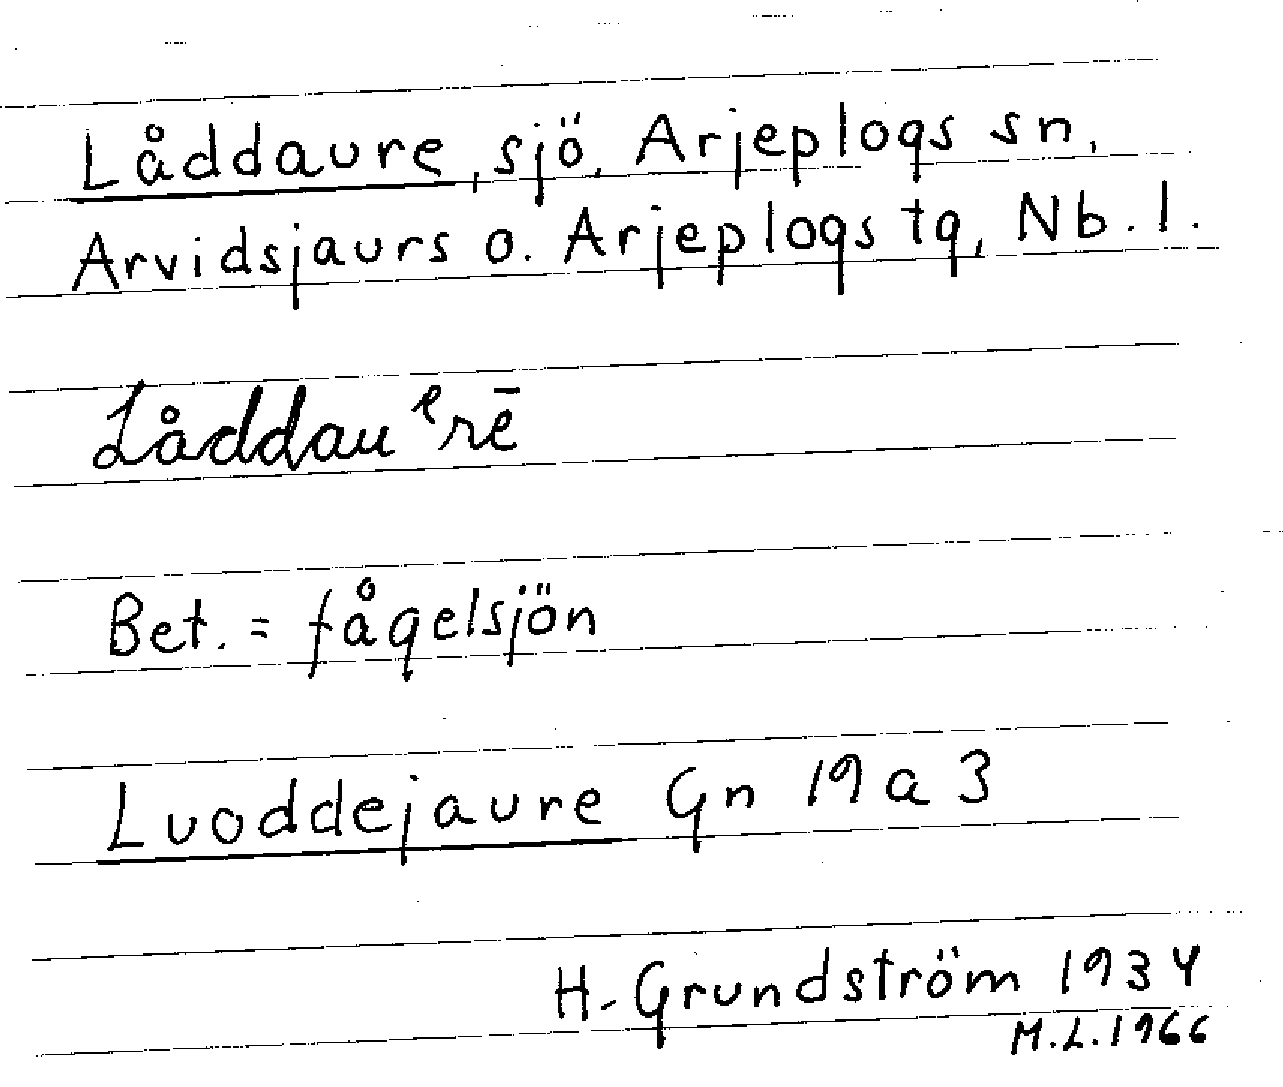 Låddaure, sjö, Arjeplogs sn,
Arvidsjaurs o. Arjeplogs tg, Nb. l.
Låddauᵉrē
Bet. = fågelsjön
Luoddejaure Gn 19 a 3
H. Grundström 1934
M.L. 1966